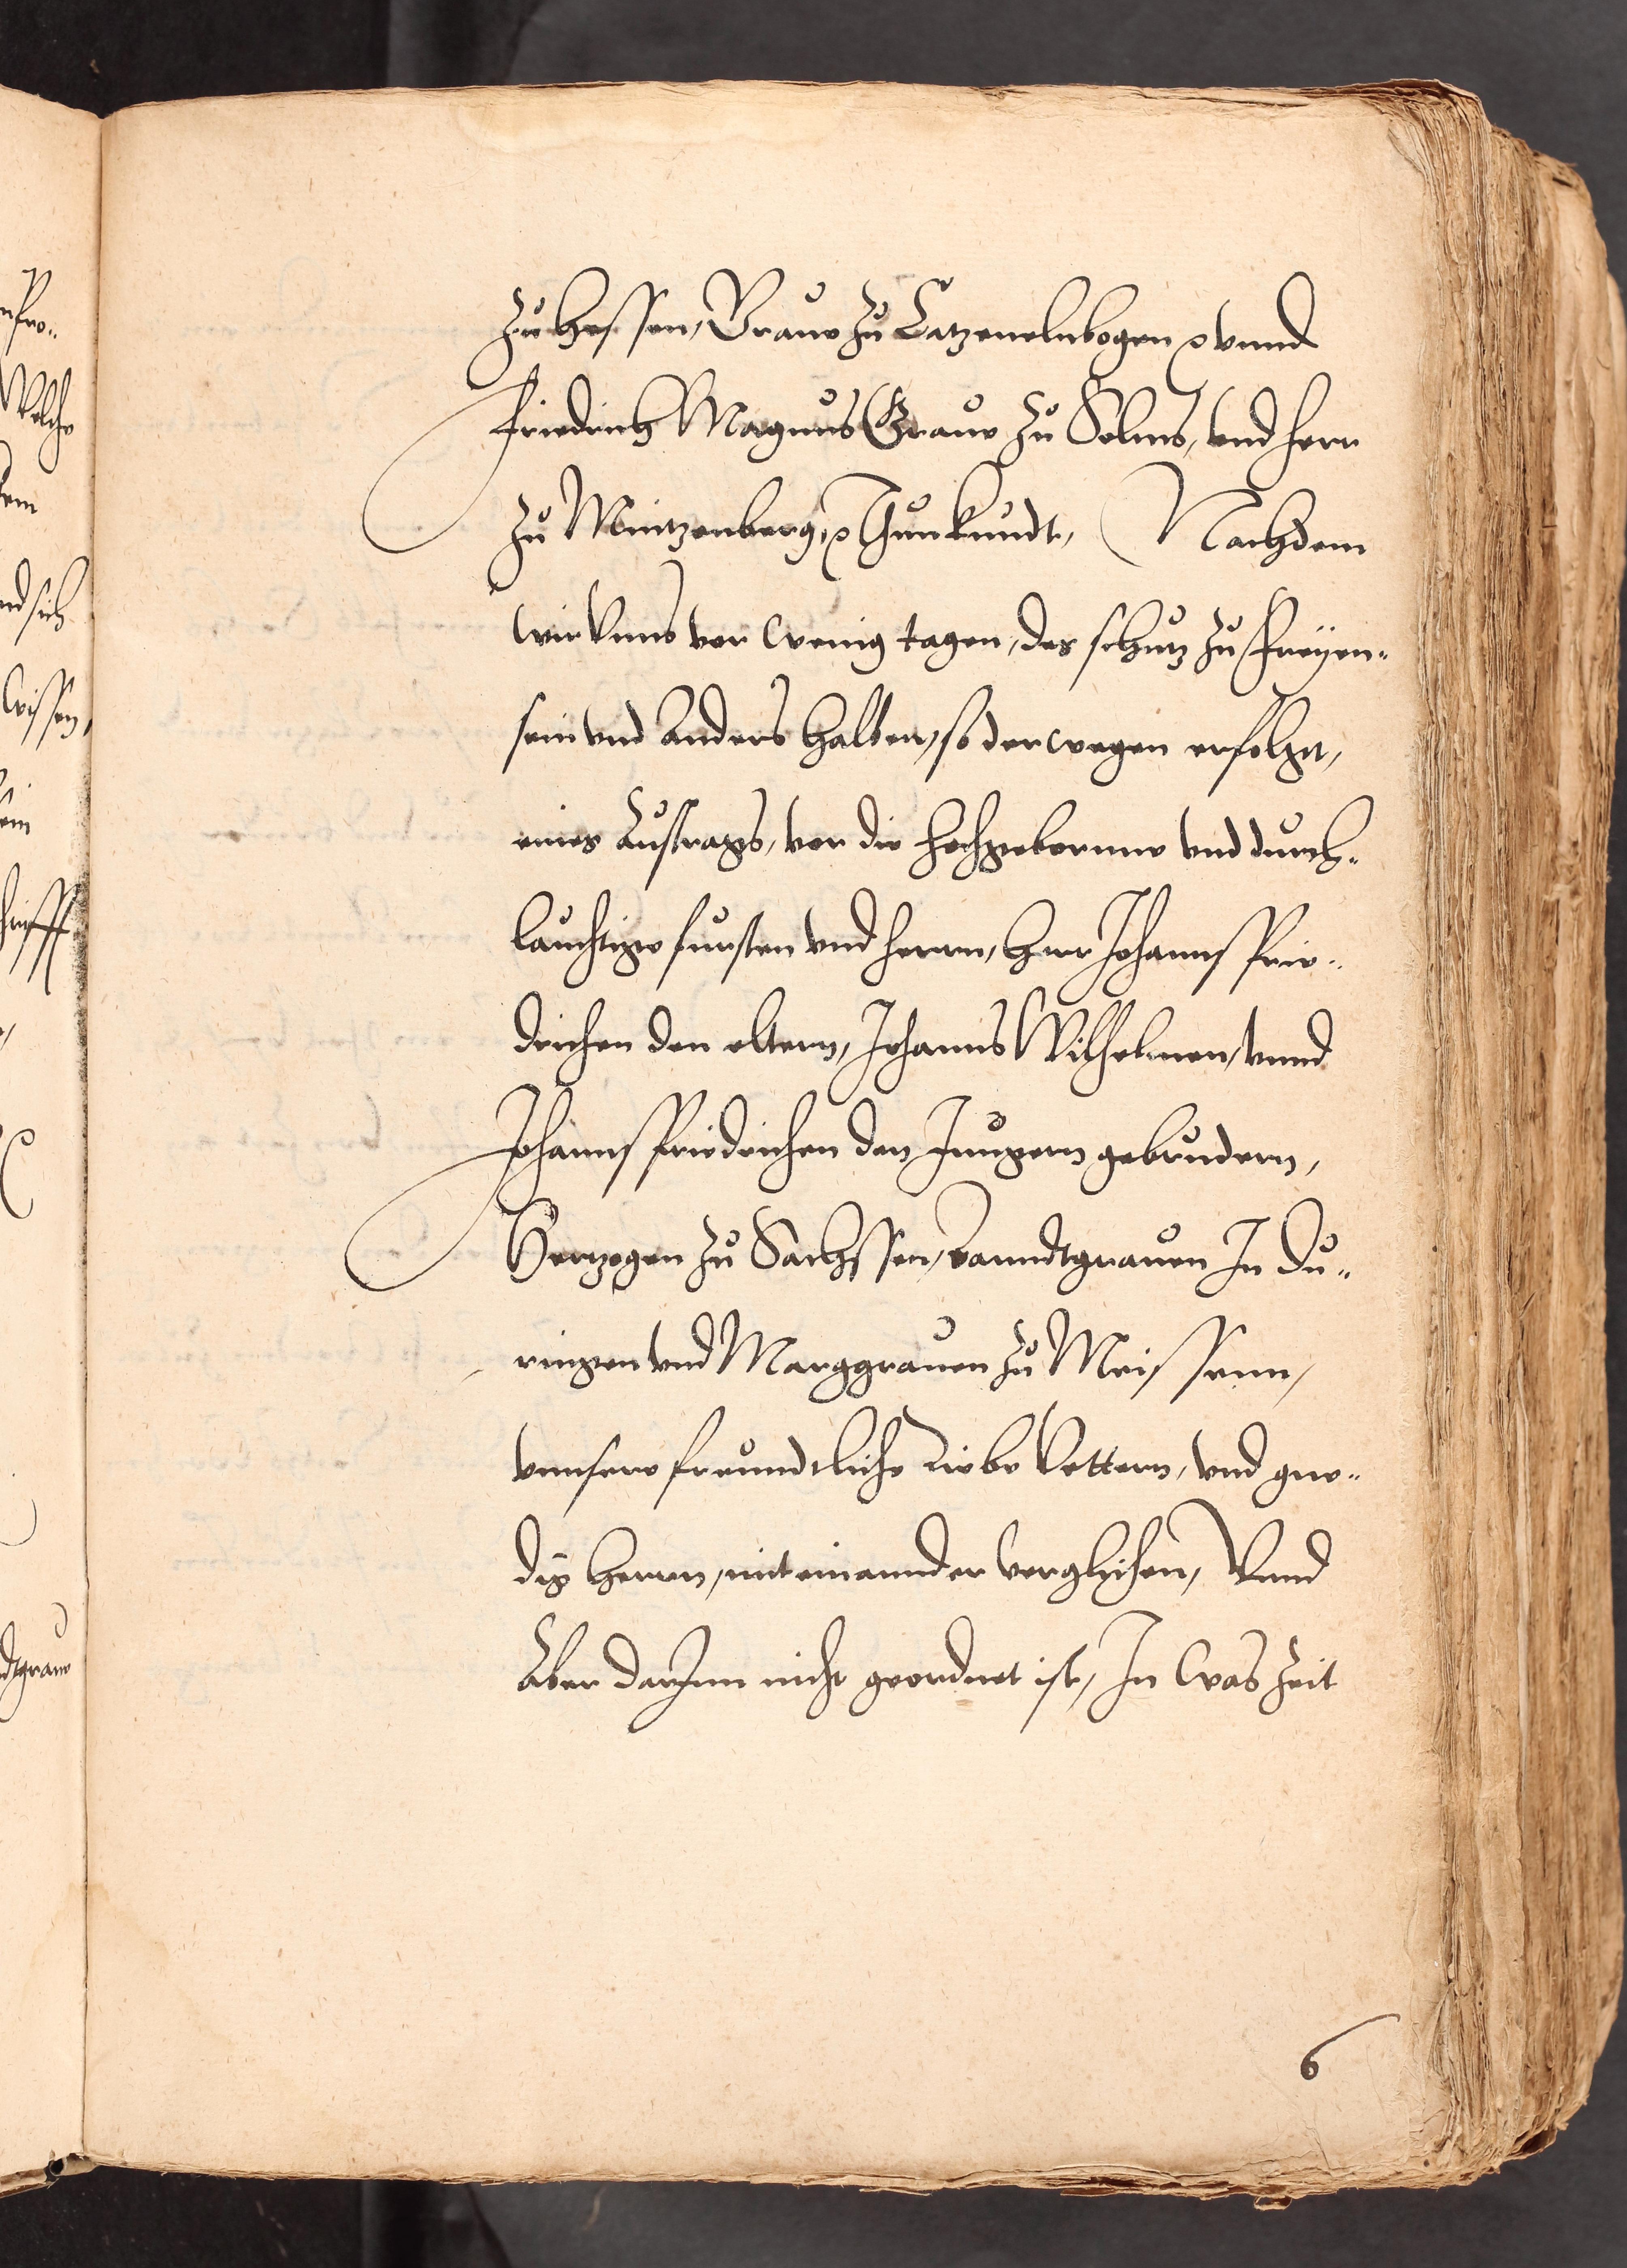 zu Hessen, Graue zu Catzenelnbogen ꝛc vnnd
Friedrich Magnus Graue zu Solms, vnd herr
zu Mintzenberg, ꝛc Thun kundt, Nachdem
wir Vnns vor wenig tagen, des schutz zu Freyen-
sein vnd Anders halben, so derwegen erfolgt,
eines Austrags, vor die hochgeborne vnd durch-
lauchtige fursten vnd herrn, herr Johanns Frie-
drichen den eltern, Johanns Wilhelmen, vnnd
Johanns Friedrichen den Jungern gebrudern,
Hertzogen zu Sachssen, Lanndtgrauen In Du-
ringen vnd Marggrauen zu Meissenn,
vnnsere freundtliche Liebe Vettern, vnd gne-
dig Herrn, mit einannder verglichen, Vnnd
Aber darJnn nicht geordnet ist, In was Zeit
6